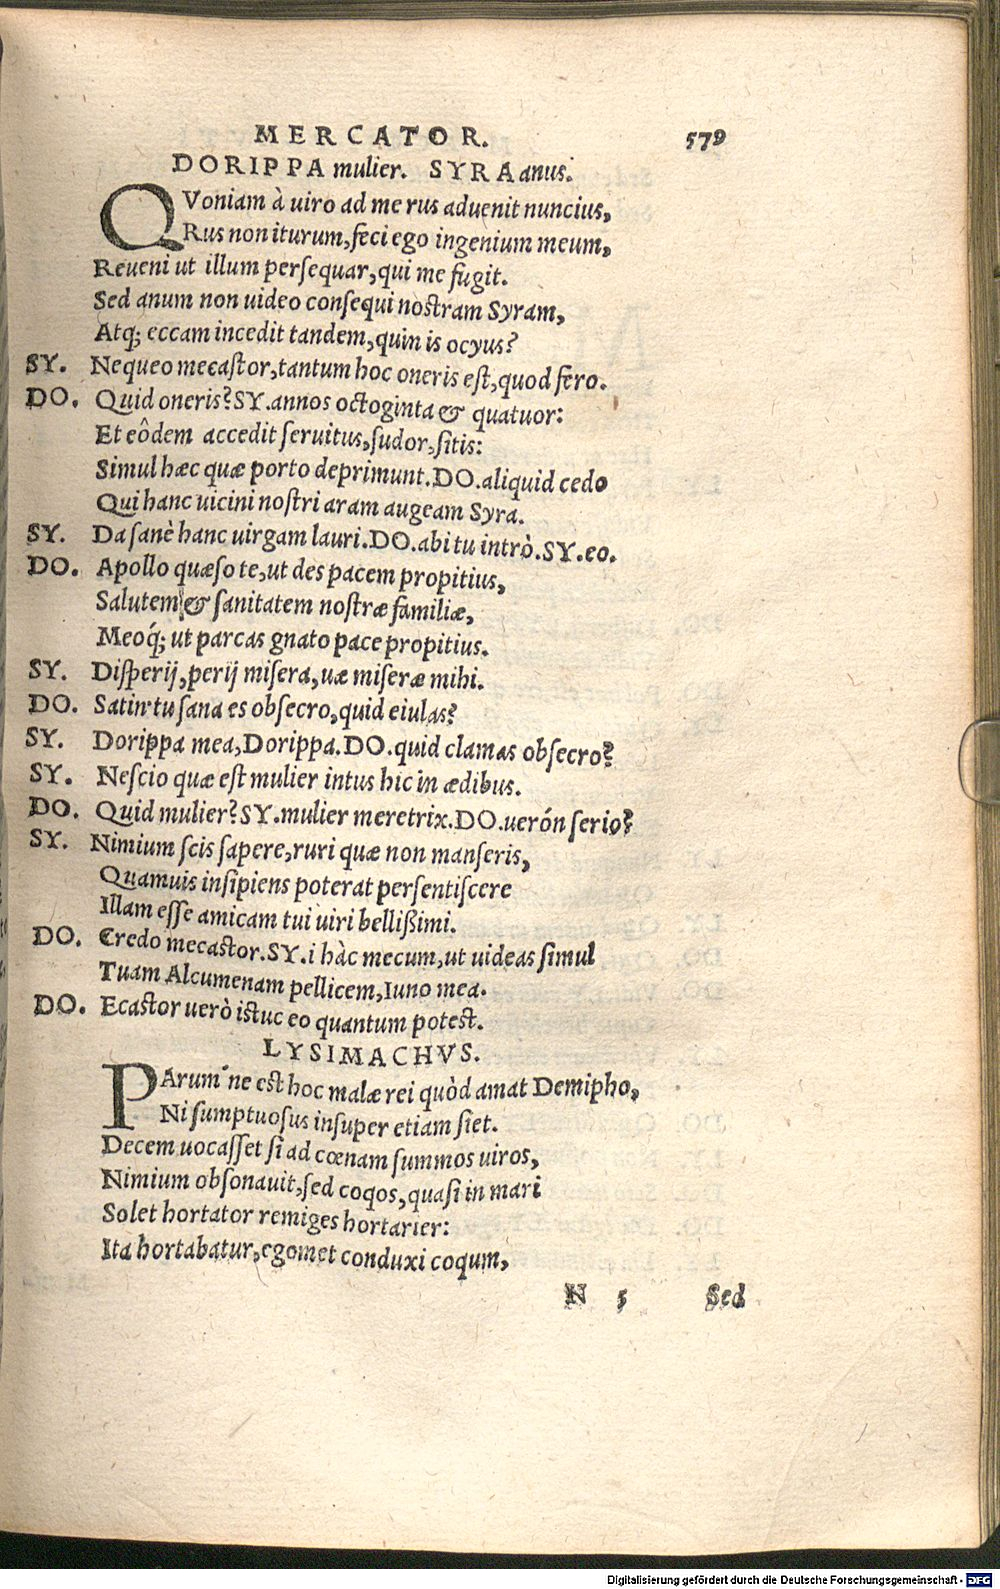 MERCATOR. 579
DORIPPA mulier. SYRA anus.
QVoniam à uiro ad me rus aduenit nuncius,
Rus non iturum, feci ego ingenium meum,
Reueni ut illum perſequar, qui me fugit.
Sed anum non uideo conſequi noſtram Syram,
Atq; eccam incedit tandem, quin is ocyus?
SY. Nequeo mecaſtor, tantum hoc oneris eſt, quod fero.
DO. Quid oneris? SY. annos octoginta & quatuor:
Et eôdem accedit ſeruitus, ſudor, ſitis:
Simul hæc quæ porto deprimunt. DO. aliquid cedo
Qui hanc uicini noſtri aram augeam Syra.
SY. Da ſanè hanc uirgam lauri. DO. abi tu intrò. SY. eo.
DO. Apollo quæſo te, ut des pacem propitius,
Salutem & ſanitatem noſtræ familiæ,
Meoq́; ut parcas gnato pace propitius.
SY. Diſperij, perij miſera, uæ miſeræ mihi.
DO. Satin' tu ſana es obſecro, quid eiulas?
SY. Dorippa mea, Dorippa. DO. quid clamas obſecro?
SY. Neſcio quæ eſt mulier intus hic in ædibus.
DO. Quid mulier? SY. mulier meretrix. DO. uerón ſerio?
SY. Nimium ſcis ſapere, ruri quæ non manſeris,
Quamuis inſipiens poterat perſentiſcere
Illam eſſe amicam tui uiri belliſsimi.
DO. Credo mecaſtor. SY. i hàc mecum, ut uideas ſimul
Tuam Alcumenam pellicem, Iuno mea.
DO. Ecaſtor uerò iſtuc eo quantum poteſt.
LYSIMACHVS.
PArum'ne eſt hoc malæ rei quòd amat Demipho,
Ni ſumptuoſus inſuper etiam ſiet.
Decem uocaſſet ſi ad cœnam ſummos uiros,
Nimium obſonauit, ſed coqos, quaſi in mari
Solet hortator remiges hortarier:
Ita hortabatur, egomet conduxi coqum,
N 5 Sed
Digitalisierung gefördert durch die Deutsche Forschungsgemeinschaft - DFG